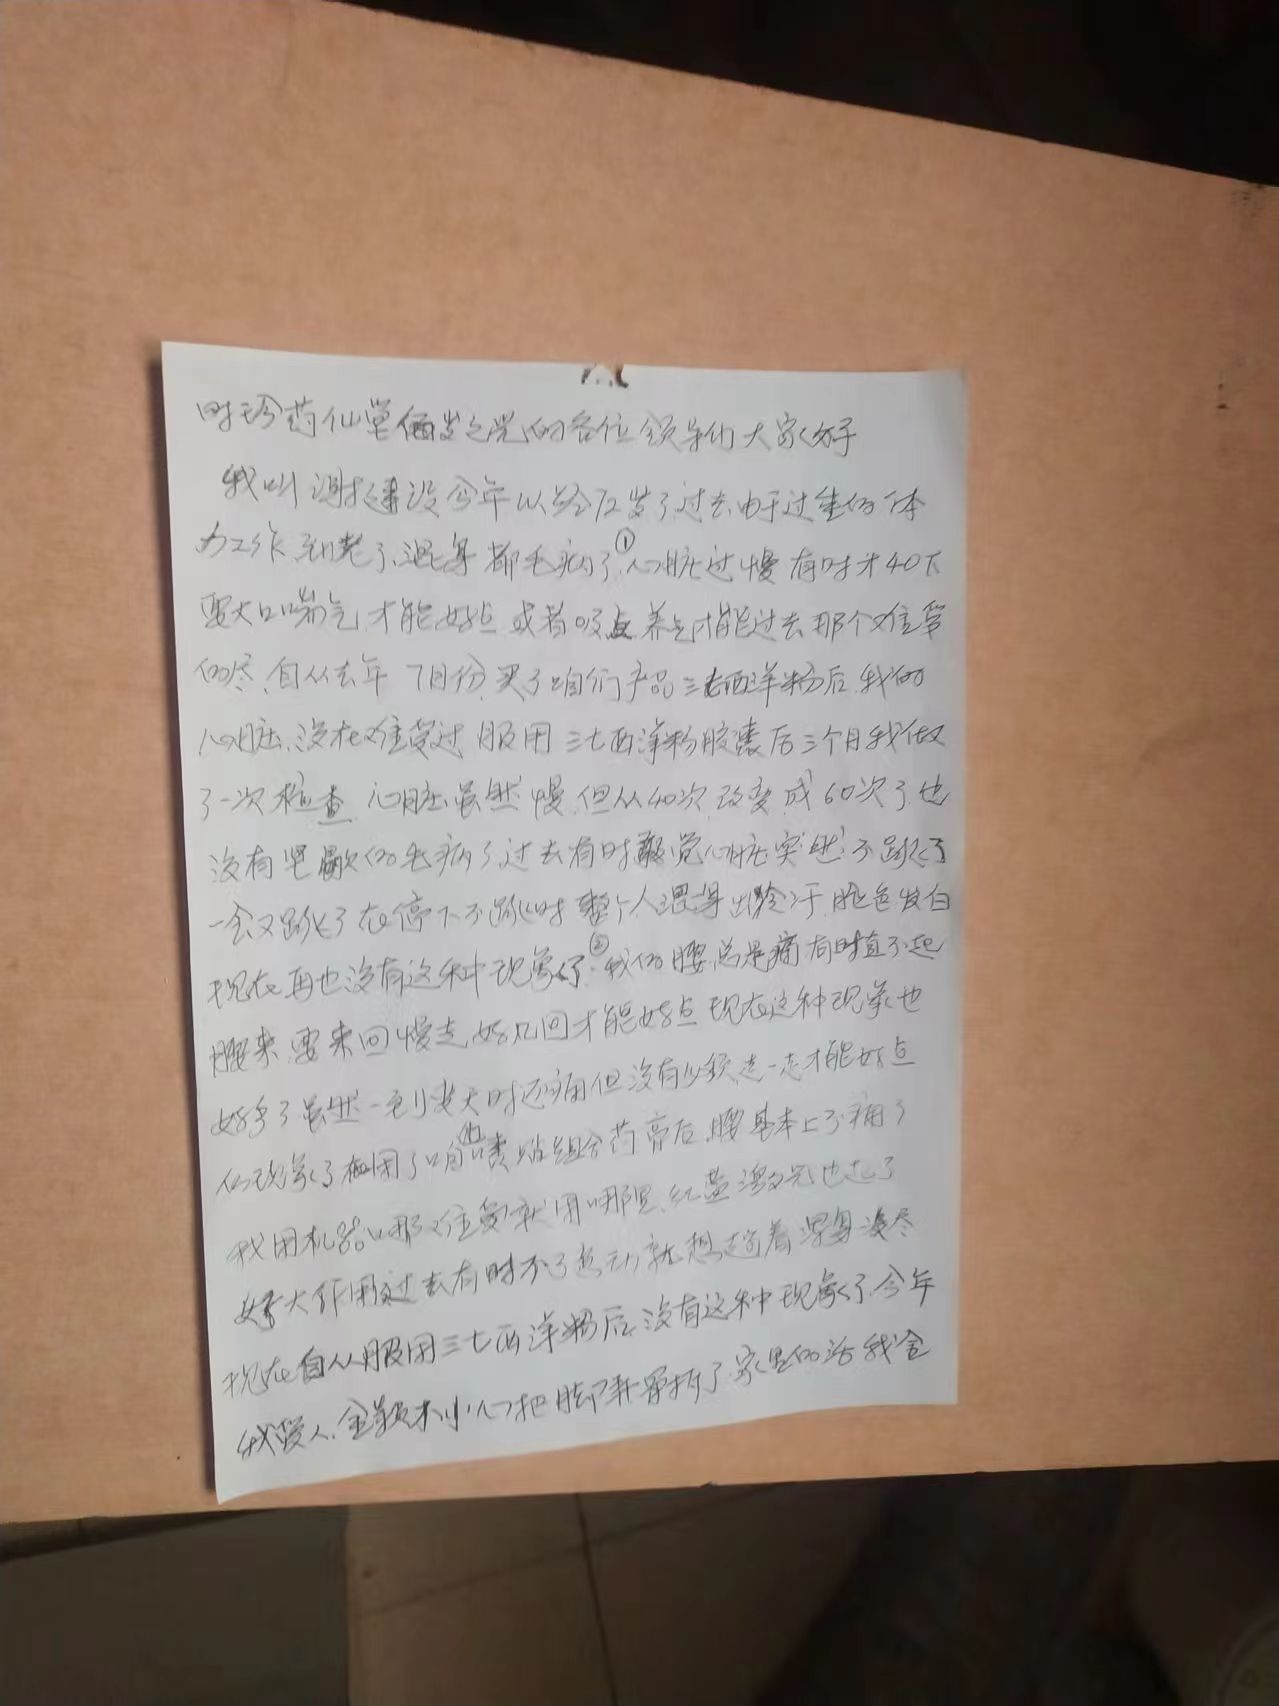 时珍药仙堂俪岁之光的各位领导们大家好
我叫谢建设今年以经72岁了,过去由于过重的体
力工作,到老了,混身都毛病了①心脏过慢有时才40下
要大口喘气,才能好点,或者吸点养气才能过去那个难受
的尽,自从去年7月份,买了咱们产品三七西洋粉后,我的
心脏,没在难受过,服用三七西洋粉胶囊后三个月我做
了一次检查,心脏虽然慢,但从40次,改变成60次了也
没有早歇的毛病了,过去有时感觉心脏突然不跳了
一会又跳了在停下不跳时整个人混身出冷汗,脸色发白
现在再也没有这种现象了.②我的腰总是痛有时直不起
腰来,要来回慢走好几回才能好点现在这种现象也
好多了虽然一到变天时还痛但没有必须走一走才能好点
的现象了在用了咱的贴组合药膏后,腰基本上不痛了
我用机器哪难受就用哪里,红蓝激光也起了
好大作用,过去有时不了运动就想趟着混身没尽
现在自从服用三七西洋粉后,没有这种现象了.今年
我爱人,金不小心把脚骨折了,家里的活我全